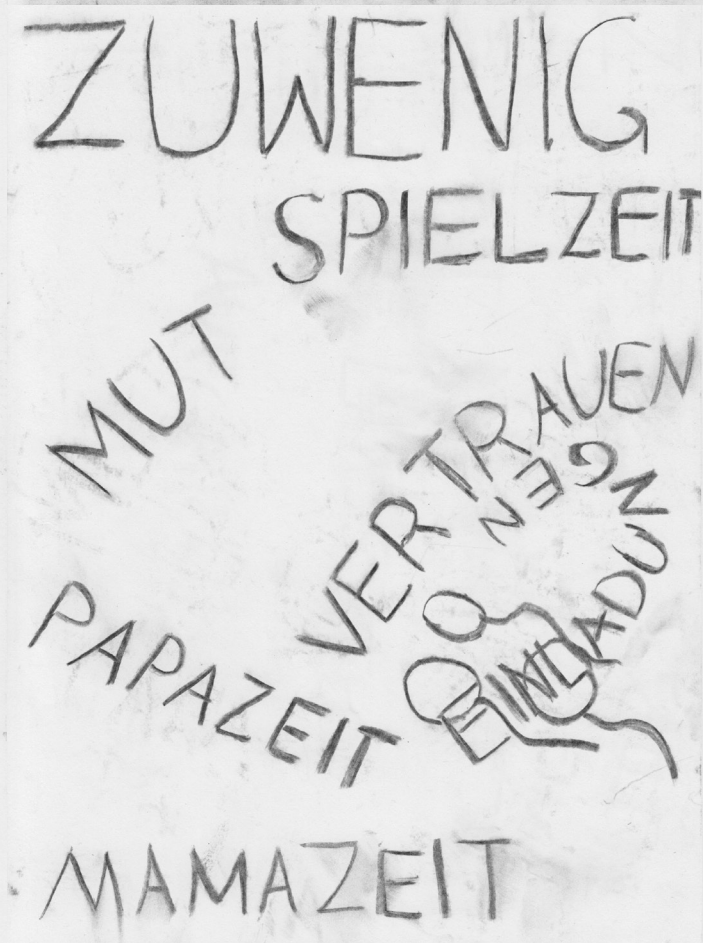 ZUWENIG
SPIELZEIT
MUT
VERTRAUEN
EINLADUNGEN
PAPAZEIT
MAMAZEIT